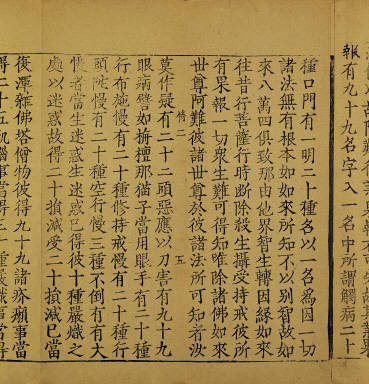 報有九十九名字入一名中所謂觸病二十
種口門有一明二十種名以一名為因一切
諸法無有根本如如來所知不以別智故如
來八萬四俱致那由他界智生轉因緣如來
往昔行菩薩行時斷除殺生攝受持戒彼所
有果報一切衆生難可得知唯除諸佛如來
世尊阿難彼諸世尊於彼諸法所可知者汝
情二 五
莫作疑有二十二頭惡應以刀害有九十九
眼病譬如檀那猫子當用眼手有二十種
行布施慢有二十種修持戒慢有二十種行
頭陀慢有二十種空行慢三種不倒有有大
慢者當生迷惑生迷惑已得彼十種嚴熾之
處以迷惑故得二十損減受二十損減已當
復潭雜佛塔僧物彼得九十九諸疥癩事當
得二十五飢事當得三十種嚴熾事當得